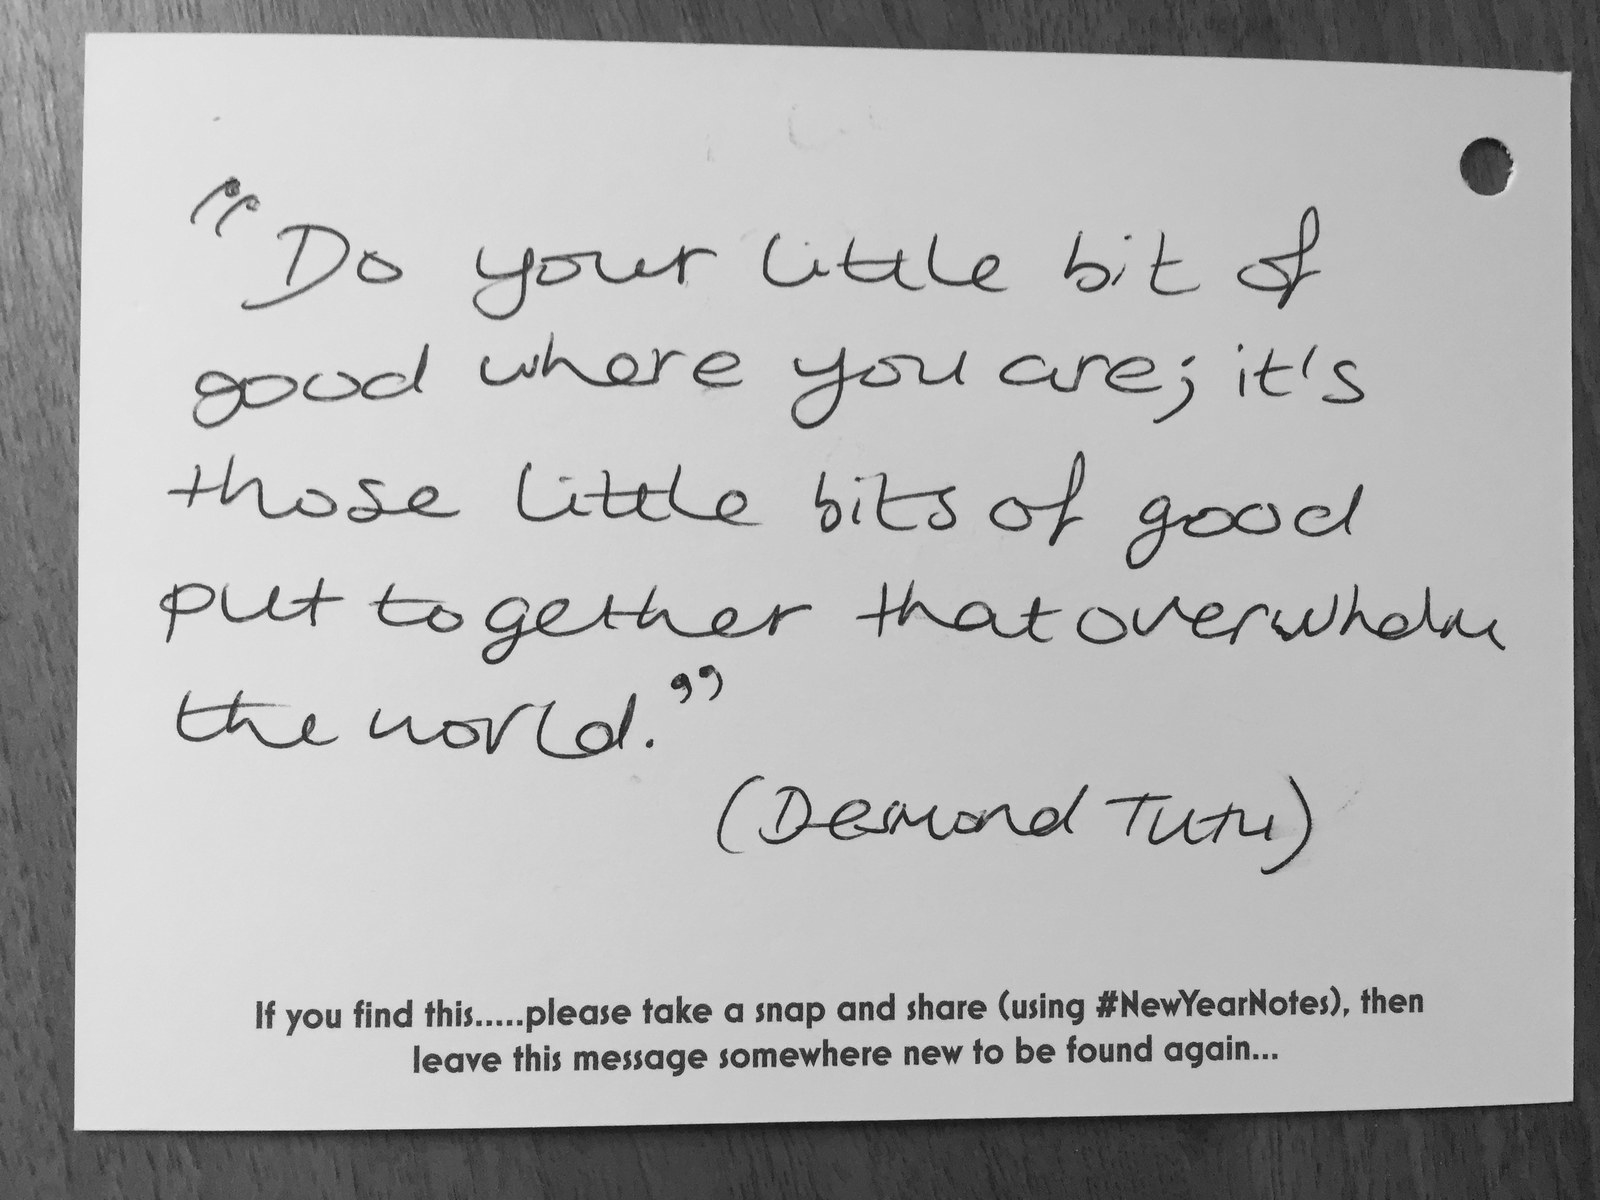 “Do your little bit of
good where you are; it's
those little bits of good
put together that overwhelm
the world.”
(Desmond Tutu)
If you find this.....please take a snap and share (using #NewYearNotes), then
leave this message somewhere new to be found again...